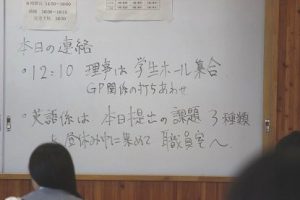 本日の連絡
・12:10 理事は 学生ホール集合
GP関係の打ちあわせ
・英語係は 本日提出の課題 3種類
を昼休み中に集めて 職員室へ